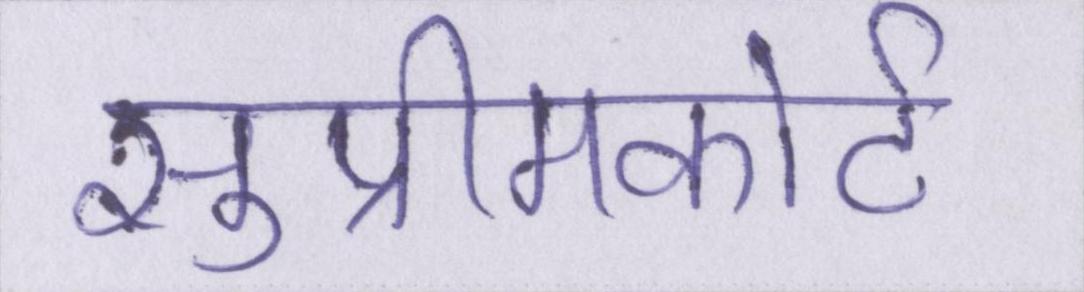 सुप्रीमकोर्ट